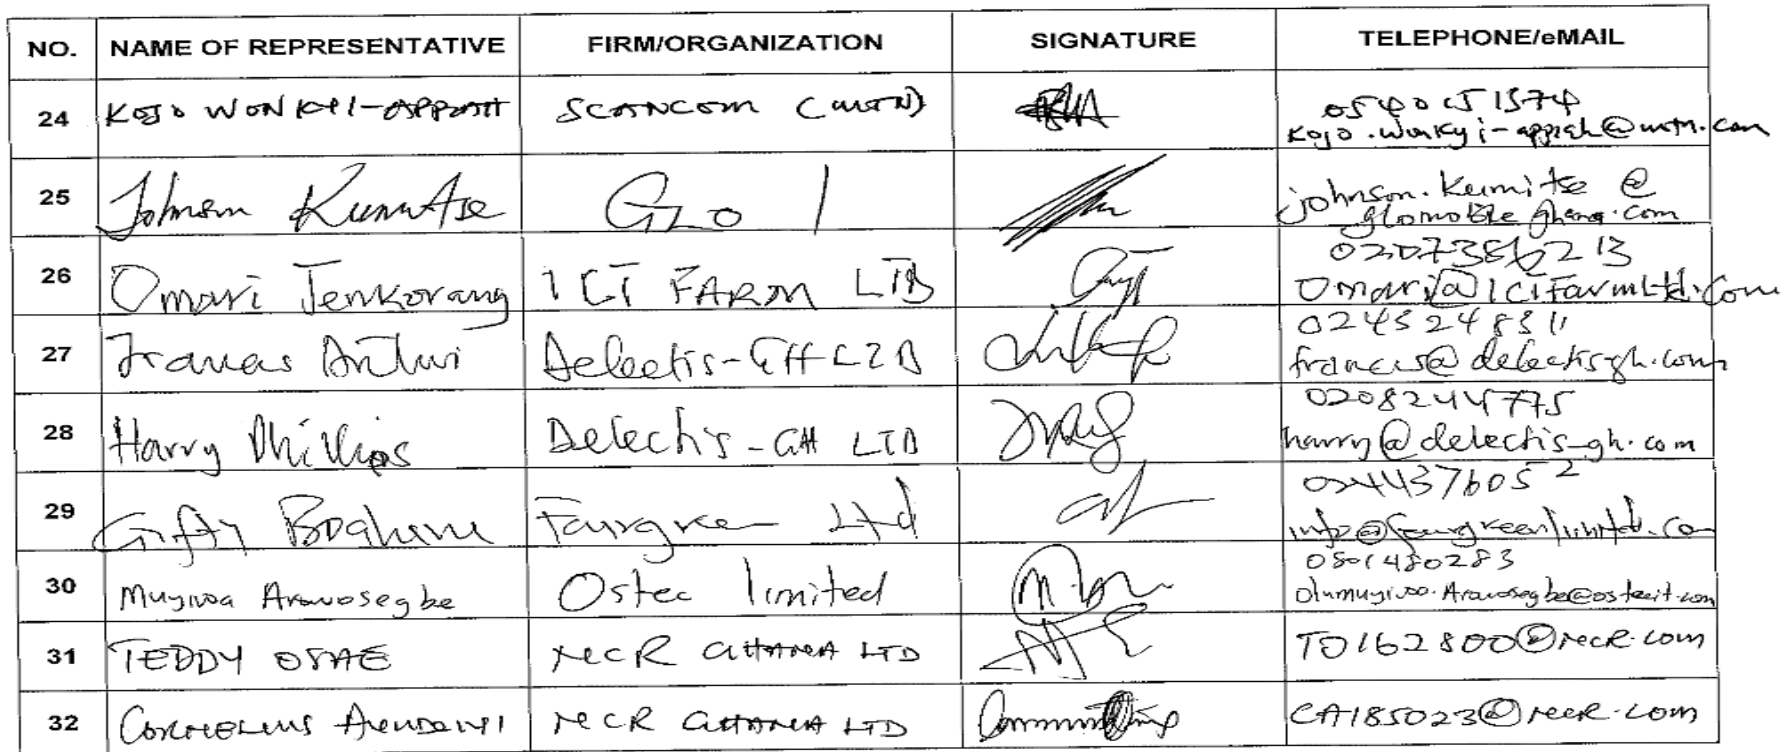 NO. NAME OF REPRESENTATIVE FIRM/ORGANIZATION SIGNATURE TELEPHONE/eMAIL
24 KOJO WONKYI-APPIAH SCANCOM (MTN) 0540151574
kojo.wonkyi-appiah@mtn.com
25 Johnson Kumitse GLO johnson.kumitse@
glomobileghana.com
26 Omari Tenkorang ICT FARM LTD
Omari@ICTFarmLtd.com
27 Francis Antwi Delectis-GH LTD 0243248311
francis@delectisgh.com
28 Harry Phillips Delectis-GH LTD 0208244775
harry@delectis-gh.com
29 Gifty Boahene Fairgreen Ltd 0244376052
info@fairgreenlimited.com
30 Muyiwa Arowosegbe Ostec limited 0501480283
olumuyiwa.Arowosegbe@ostecit.com
31 TEDDY OSAE NCR GHANA LTD TO162800@ncr.com
32 CORNELIUS NCR GHANA LTD CA185023@ncr.com